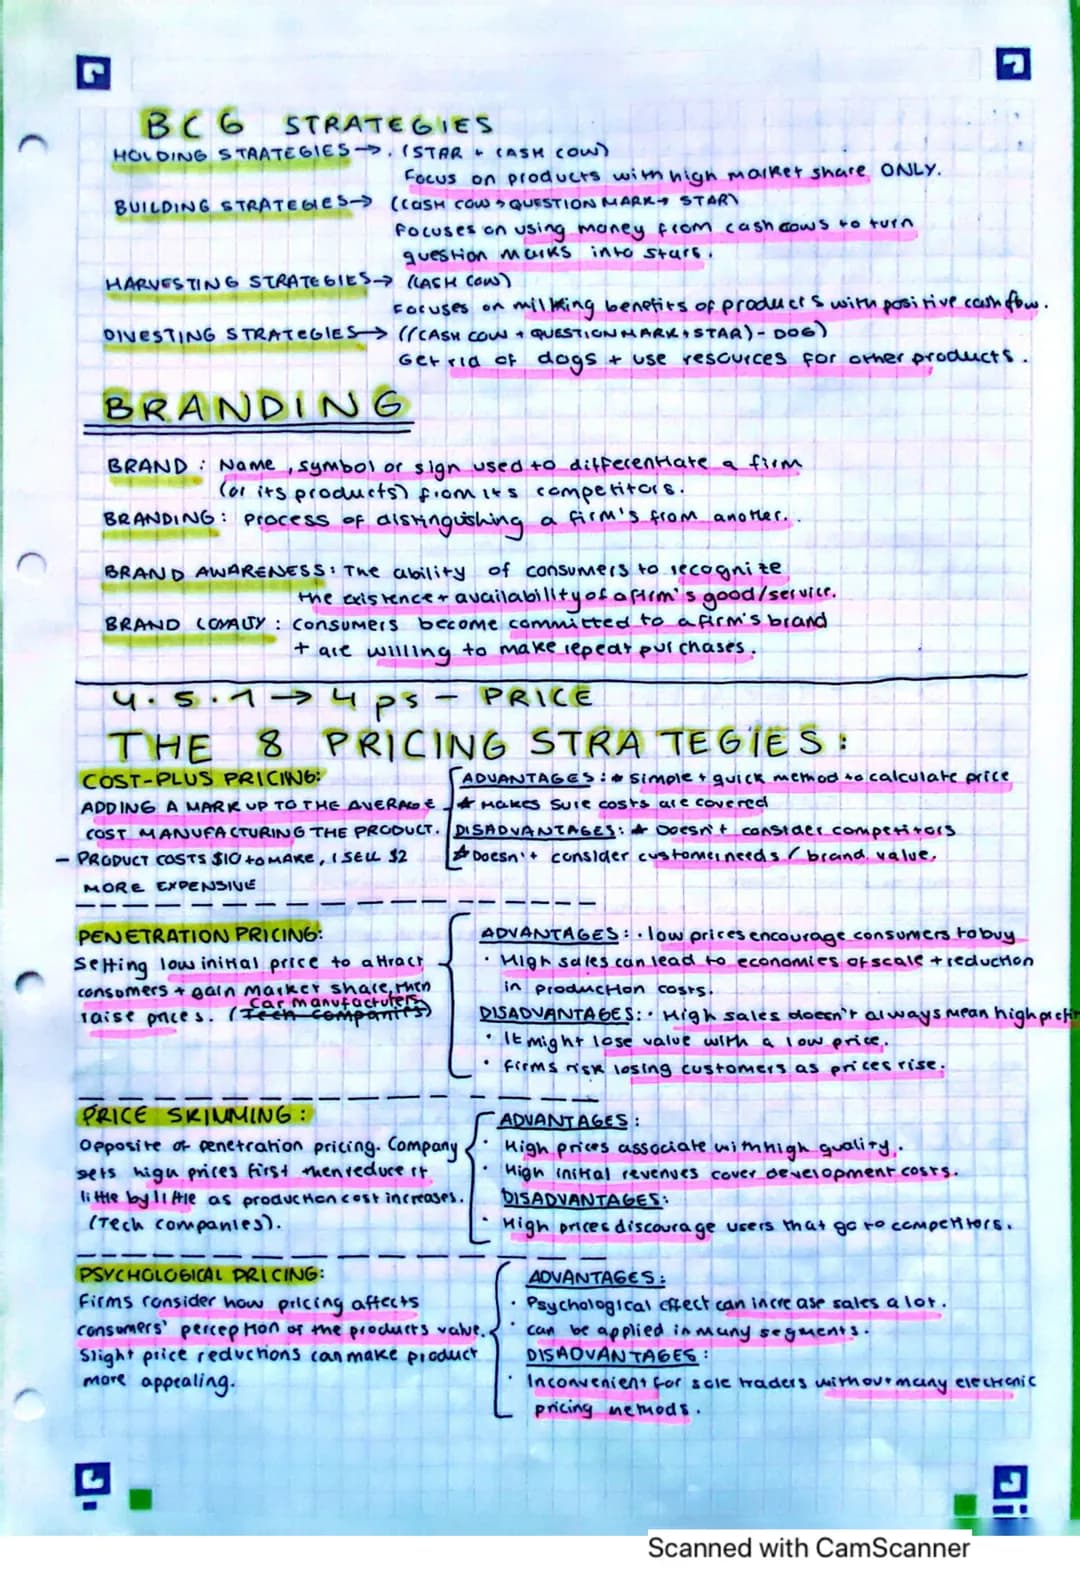 BCG STRATEGIES
HOLDING STRATEGIES → . (STAR + CASH COW)
Focus on products with high market share ONLY.
BUILDING STRATEGIES → (CASH COW → QUESTION MARK → STAR)
Focuses on using money from cash cows to turn
question marks into stars.
HARVESTING STRATEGIES → (CASH COW)
Focuses on milking benefits of products with positive cashflow.
DIVESTING STRATEGIES → ((CASH COW + QUESTION MARK + STAR) - DOG)
Get rid of dogs + use resources for other products.
BRANDING
BRAND : Name, symbol or sign used to differentiate a firm
(or its products) from its competitors.
BRANDING : process of distinguishing a firm's from another.
BRAND AWARENESS : The ability of consumers to recognize
the existence + availability of a firm's good/service.
BRAND LOYALTY : consumers become committed to a firm's brand
+ are willing to make repeat purchases.
4.5.1 → 4 ps - PRICE
THE 8 PRICING STRATEGIES :
COST-PLUS PRICING:
ADDING A MARK UP TO THE AVERAGE
COST MANUFACTURING THE PRODUCT.
- PRODUCT COSTS $10 to MAKE, I SELL $2
MORE EXPENSIVE
ADVANTAGES : * simple + quick method to calculate price
* Makes sure costs are covered
DISADVANTAGES : * Doesn't consider competitors
* Doesn't consider customer needs / brand value.
PENETRATION PRICING:
Setting low initial price to attract
consomers + gain market share, then
car manufacturers
raise prices. (Tech companies)
ADVANTAGES : · low prices encourage consumers to buy
· High sales can lead to economies of scale + reduction
in production costs.
DISADVANTAGES: · High sales doesn't always mean high profit
· It might lose value with a low price.
· Firms risk losing customers as prices rise.
PRICE SKIMMING :
Opposite of penetration pricing. Company
sets high prices first then reduce it
little by little as production cost increases.
(Tech companies).
ADVANTAGES :
· High prices associate with high quality.
· High initial revenues cover development costs.
DISADVANTAGES:
· High prices discourage users that go to competitors.
PSYCHOLOGICAL PRICING:
Firms consider how pricing affects
consumers' perception of the products value.
Slight price reductions can make product
more appealing.
ADVANTAGES :
· Psychological effect can increase sales a lot.
· can be applied in many segments.
DISADVANTAGES :
· Inconvenient for sole traders without many electronic
pricing methods.
Scanned with CamScanner